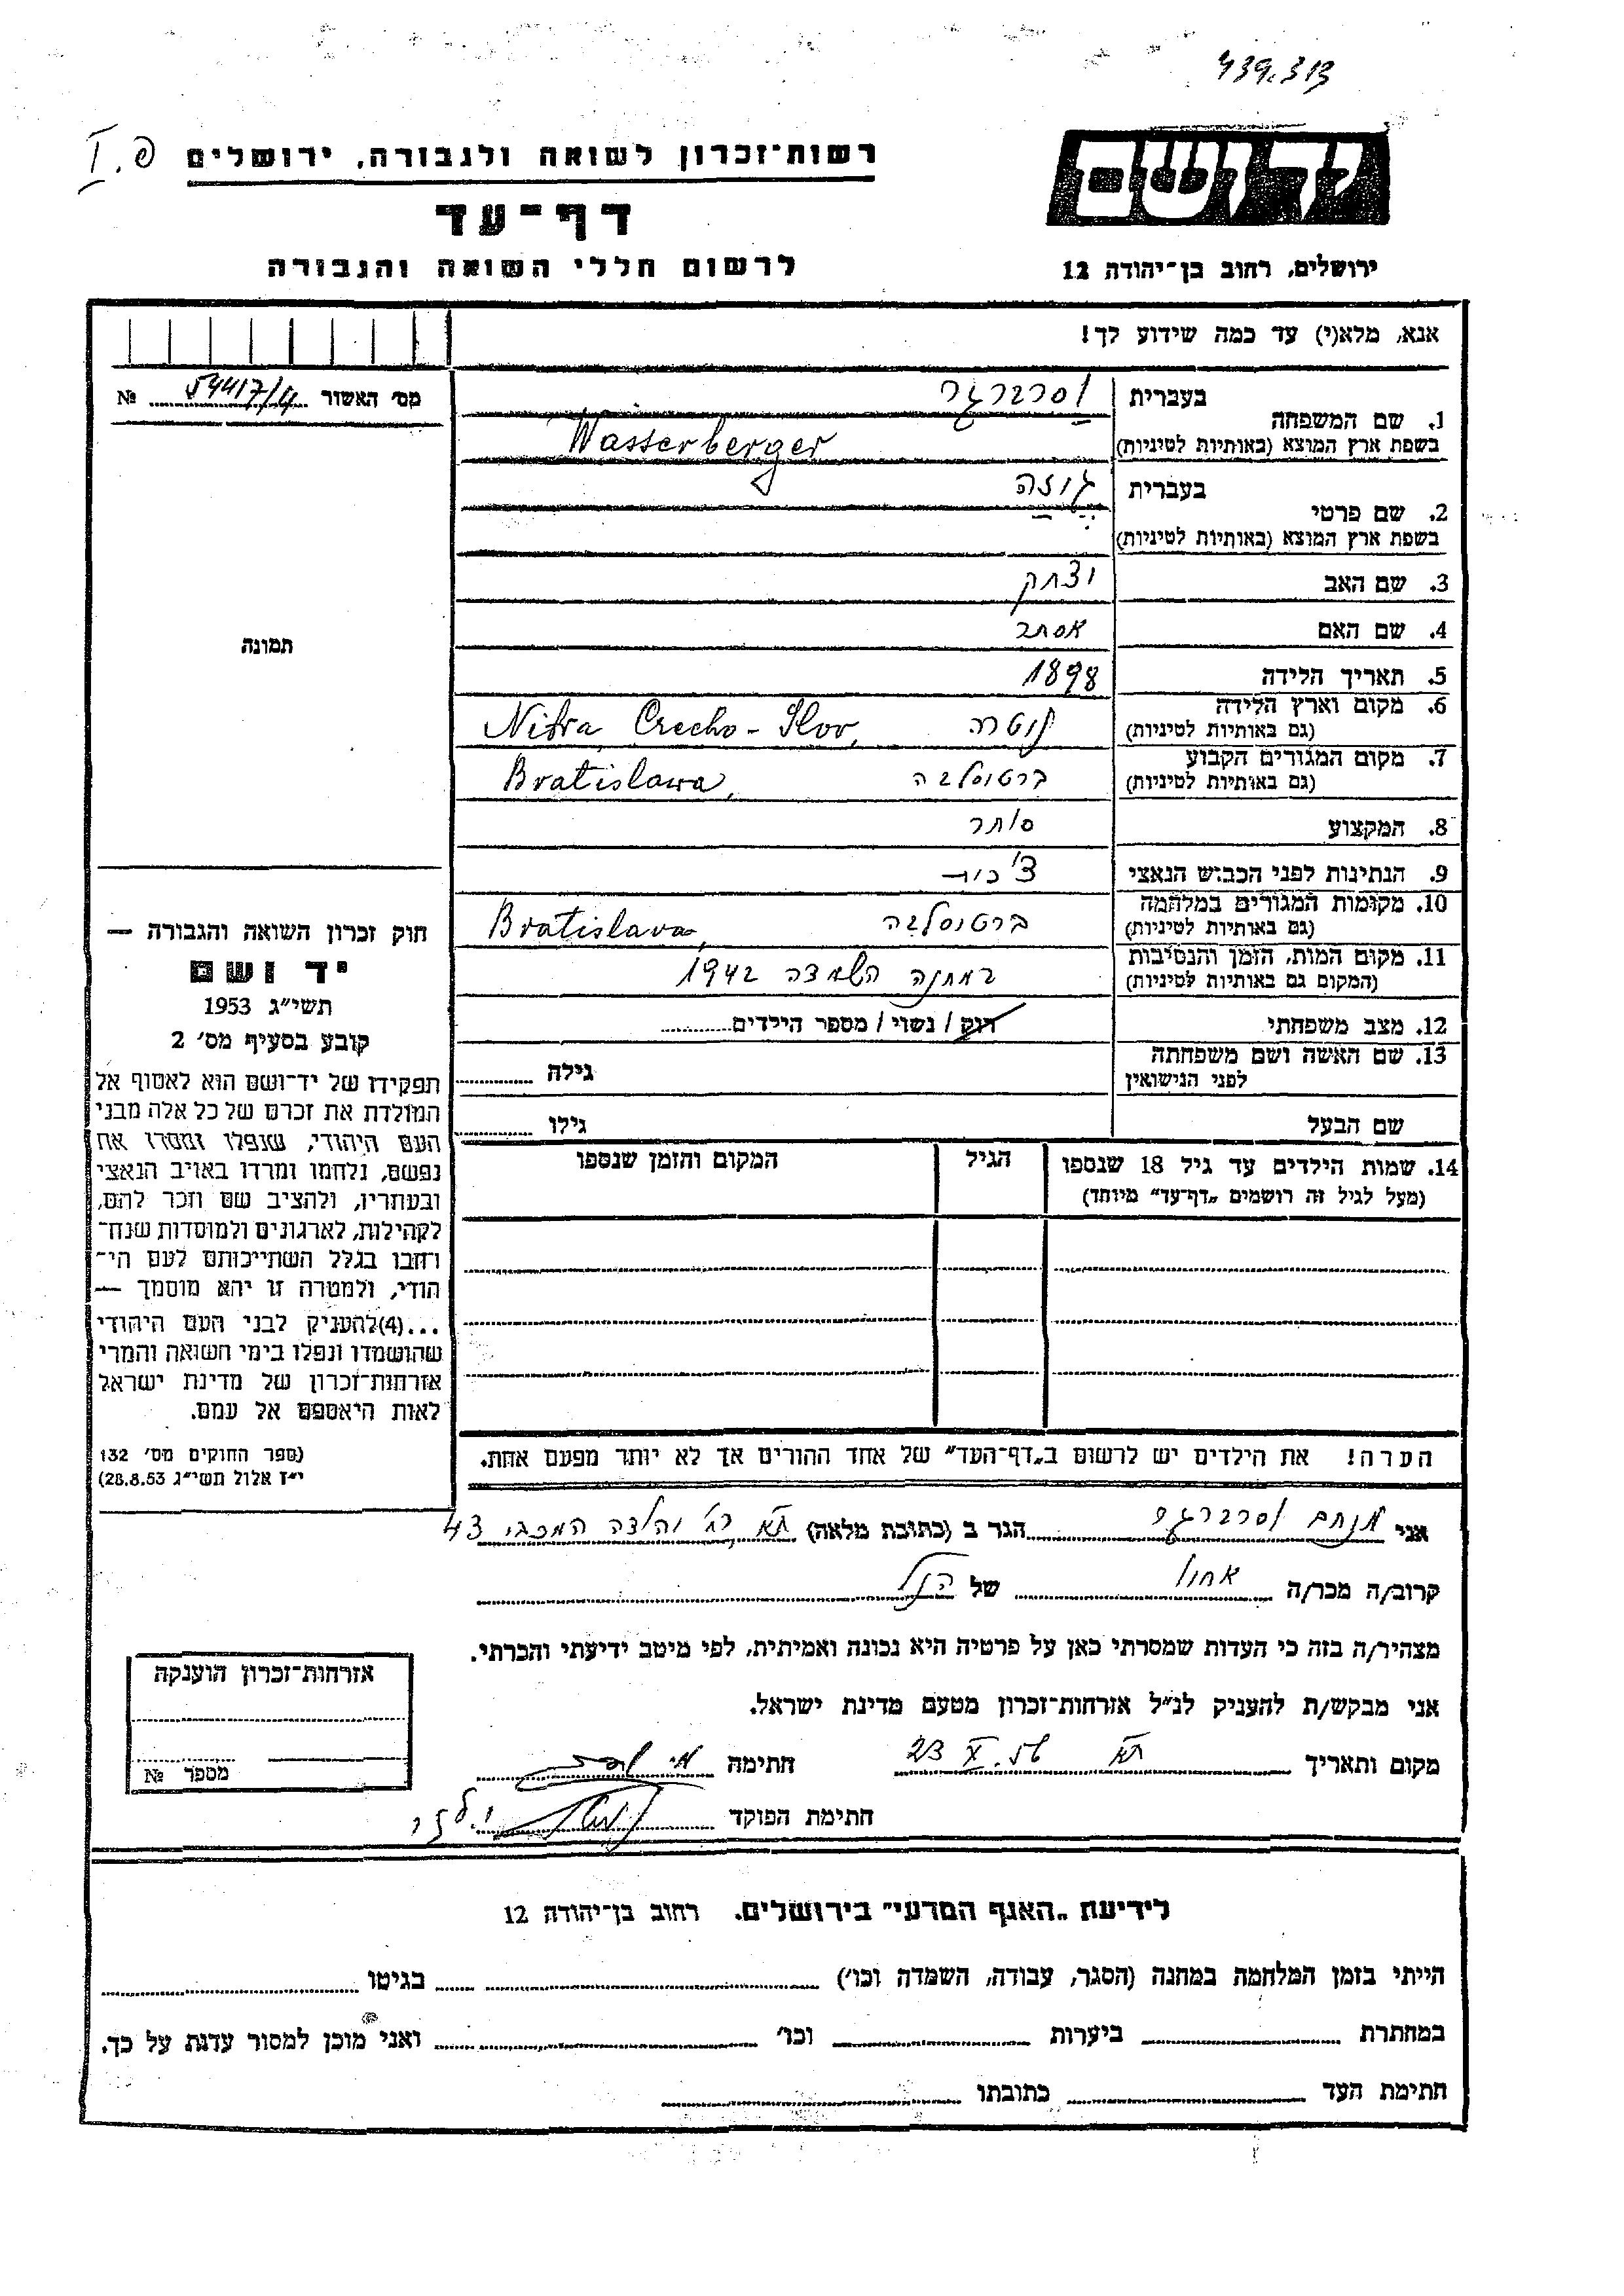 439.313
רשות־זכרון לשואה ולגבורה, ירושלים
פ. I
דף־עד
לרשום חללי השואה והגבורה
יד ושם
ירושלים, רחוב בן־יהודה 12
אנא, מלא(י) עד כמה שידוע לך!
מס' האשור 54417/4 №
1. שם המשפחה
בעברית וסרברגר
בשפת ארץ המוצא (באותיות לטיניות) Wasserberger
2. שם פרטי
בעברית גיזה
בשפת ארץ המוצא (באותיות לטיניות)
3. שם האב יצחק
4. שם האם אסתר
5. תאריך הלידה 1898
6. מקום וארץ הלידה
(גם באותיות לטיניות) ניטרה Nitra, Czecho-Slov,
7. מקום המגורים הקבוע
(גם באותיות לטיניות) ברטיסלבה Bratislawa,
8. המקצוע סוחר
9. הנתינות לפני הכבוש הנאצי צ'כית
10. מקומות המגורים במלחמה
(גם באותיות לטיניות) ברטיסלבה Bratislava,
11. מקום המות, הזמן והנסיבות
(המקום גם באותיות לטיניות) במחנה השמדה 1942
12. מצב משפחתי רוק / נשוי / מספר הילדים
13. שם האשה ושם משפחתה
לפני הנישואין גילה
שם הבעל גילו
14. שמות הילדים עד גיל 18 שנספו
(מעל לגיל זה רושמים „דף־עד" מיוחד)
הגיל
המקום והזמן שנספו
הערה! את הילדים יש לרשום ב„דף־העד" של אחד ההורים אך לא יותר מפעם אחת.
תמונה
חוק זכרון השואה והגבורה —
יד ושם
תשי"ג 1953
קובע בסעיף מס' 2
תפקידו של יד־ושם הוא לאסוף אל
המולדת את זכרם של כל אלה מבני
העם היהודי, שנפלו ומסרו את
נפשם, נלחמו ומרדו באויב הנאצי
ובעוזריו, ולהציב שם וזכר להם,
לקהילות, לארגונים ולמוסדות שנח־
רחבו בגלל השתייכותם לעם הי־
הודי, ולמטרה זו יהא מוסמך —
...(4)להעניק לבני העם היהודי
שהושמדו ונפלו בימי השואה והמרי
אזרחות־זכרון של מדינת ישראל
לאות היאספם אל עמם.
(ספר החוקים מס' 132
י"ז אלול תשי"ג 28.8.53)
אני מנחם וסרברגר הגר ב (כתובת מלאה) ת"א רח' יהודה המכבי 43
קרוב/ה מכר/ה אחיו של הנ"ל
מצהיר/ה בזה כי העדות שמסרתי כאן על פרטיה היא נכונה ואמיתית, לפי מיטב ידיעתי והכרתי.
אני מבקש/ת להעניק לנ"ל אזרחות־זכרון מטעם מדינת ישראל.
מקום ותאריך ת"א 23 X 56. חתימה
חתימת הפוקד
אזרחות־זכרון הוענקה
מספר №
לידיעת „האגף המדעי" בירושלים. רחוב בן־יהודה 12
הייתי בזמן המלחמה במחנה (הסגר, עבודה, השמדה וכו') בגיטו
במחתרת ביערות וכו' ואני מוכן למסור עדות על כך.
חתימת העד כתובתו